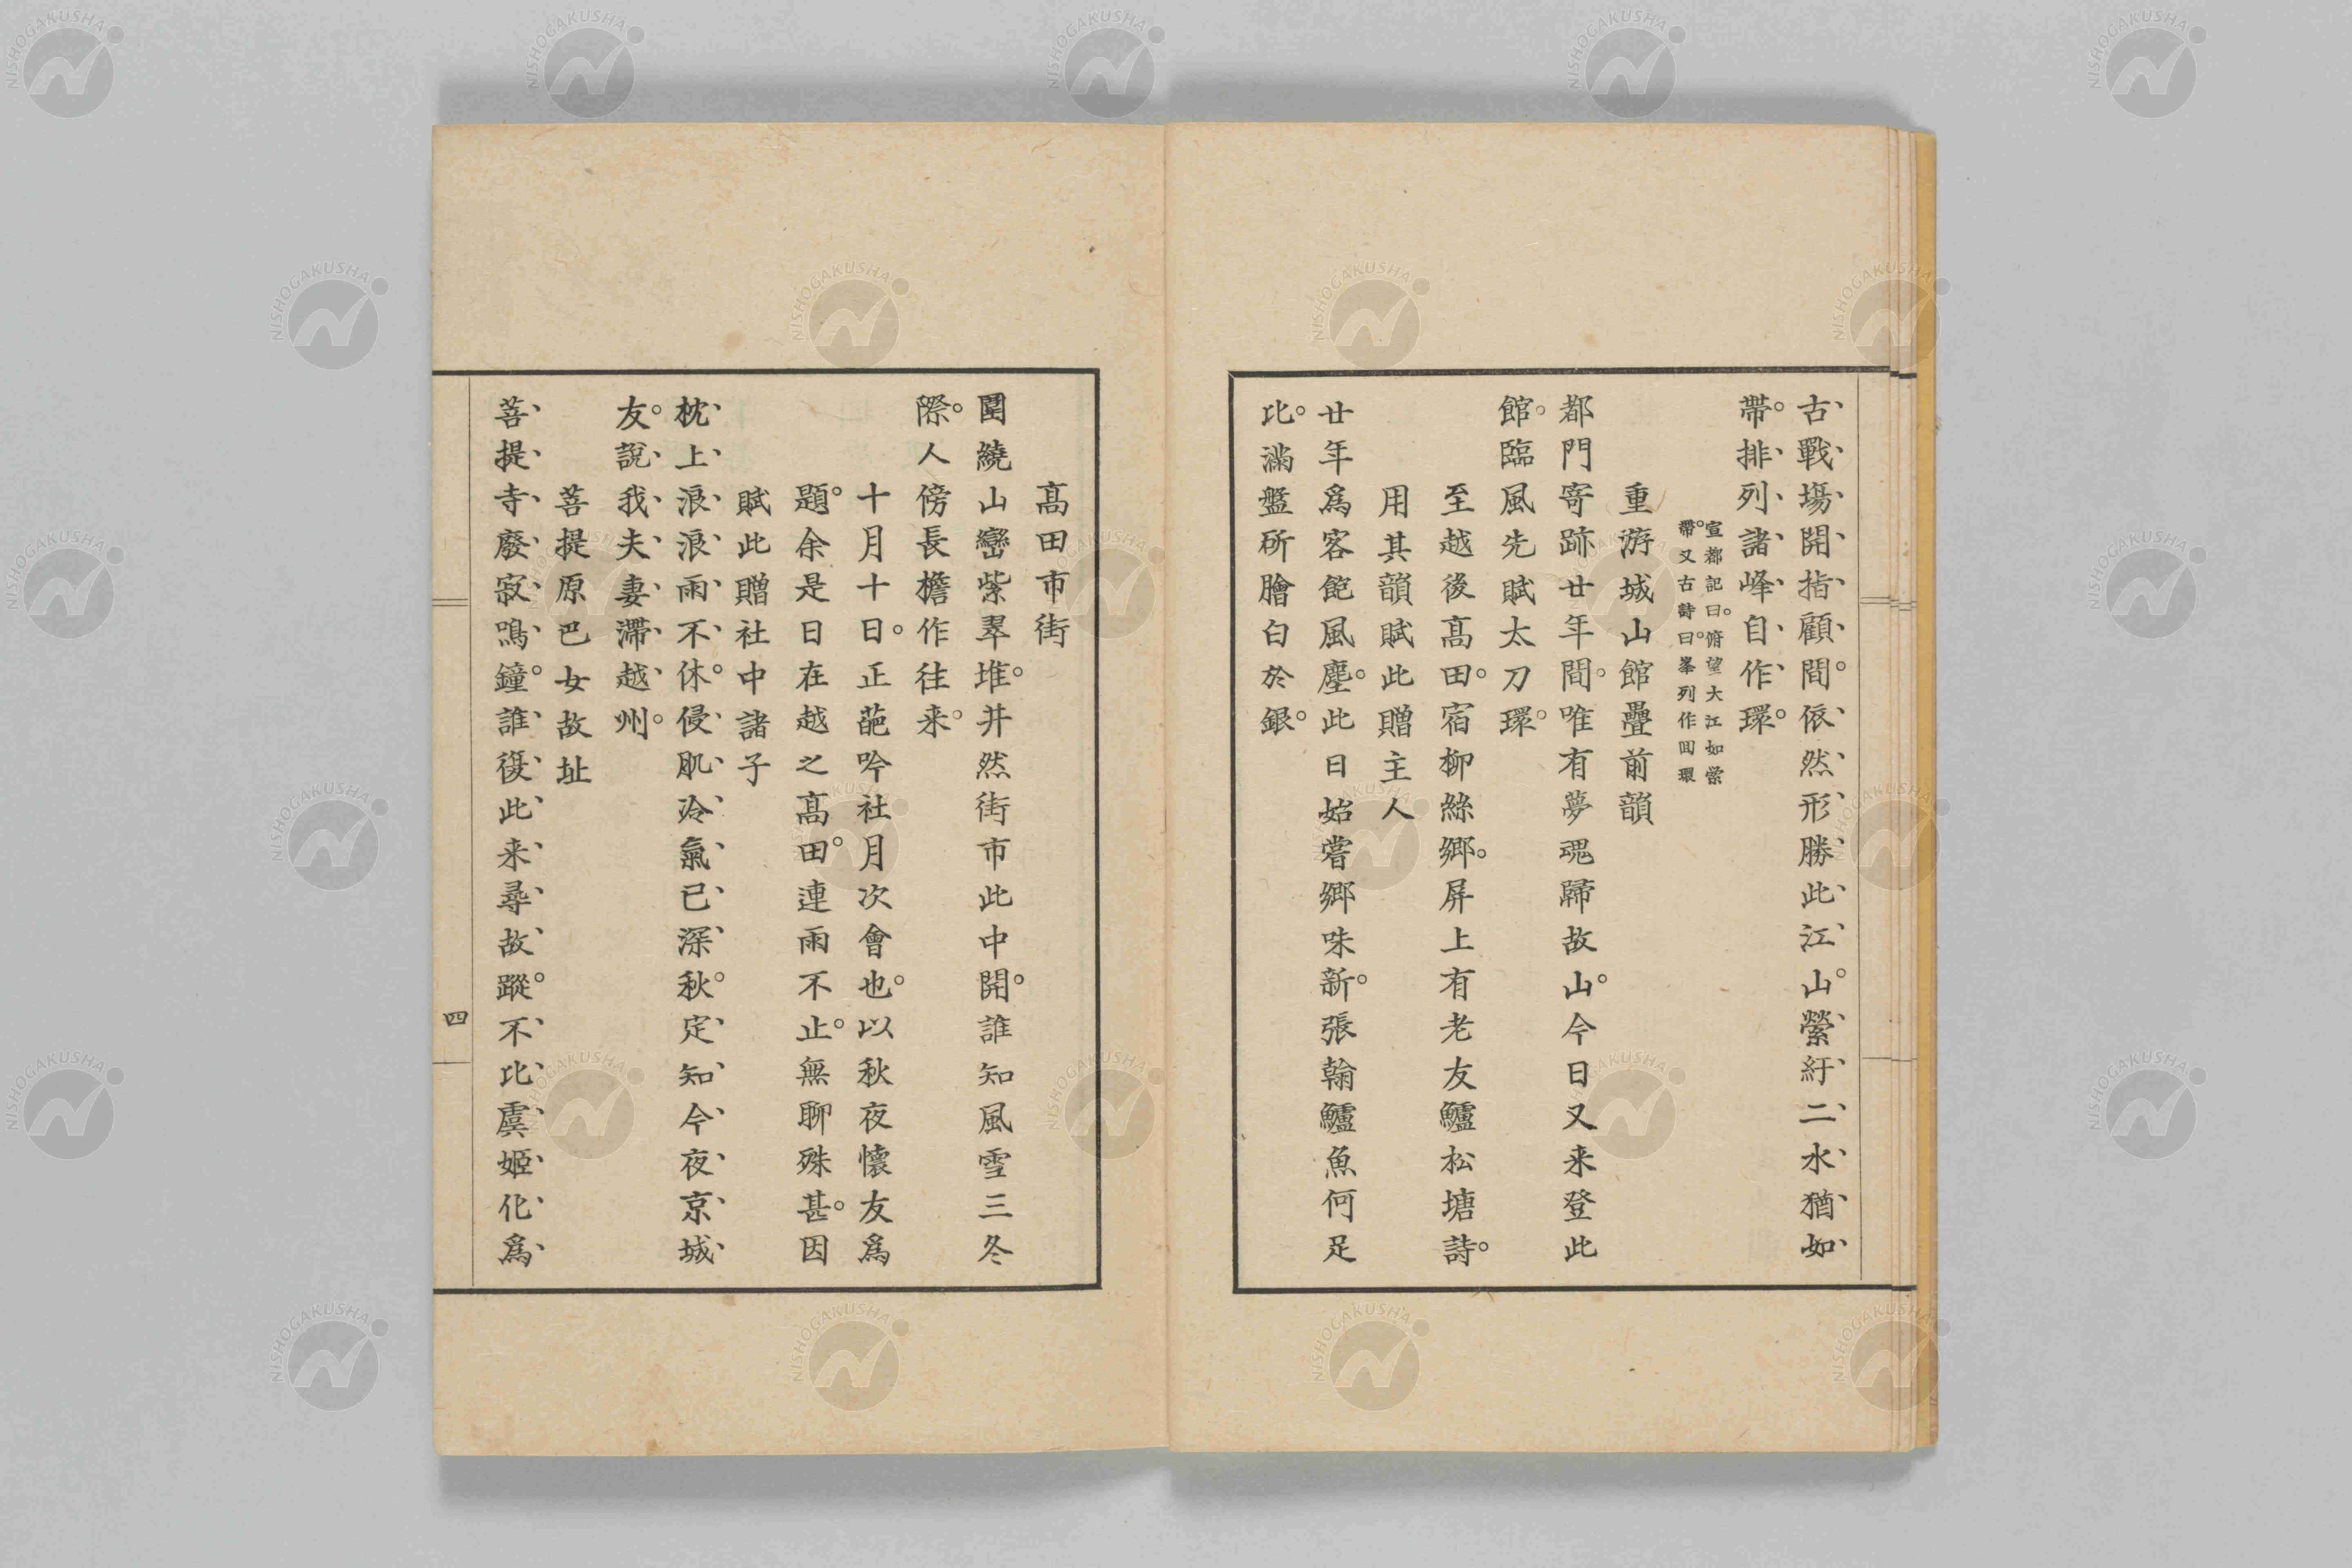 古戰場開指顧間。依然形勝此江山。縈紆二水猶如
帶。排列諸峰自作環。
宣都記曰。俯望大江如縈
帶。又古詩曰。峯列作回環
重游城山館疊前韻
都門寄跡廿年間。唯有夢魂歸故山。今日又来登此
館。臨風先賦太刀環。
至越後髙田。宿柳絲鄉。屏上有老友鱸松塘詩。
用其韻賦此贈主人
廿年爲客飽風塵。此日始嘗鄉味新。張翰鱸魚何足
比。滿盤斫膾白於銀。
髙田市街
圍繞山巒紫翠堆。井然街市此中開。誰知風雪三冬
際。人傍長檐作往来。
十月十日。正葩吟社月次會也。以秋夜懷友爲
題。余是日在越之髙田。連雨不止。無聊殊甚。因
賦此贈社中諸子
枕上浪浪雨不休。侵肌冷氣已深秋。定知今夜京城
友。說我夫妻滯越州。
菩提原巴女故址
菩提寺廢寂鳴鐘。誰復此来尋故蹤。不比虞姬化爲
四
NISHOGAKUSHA